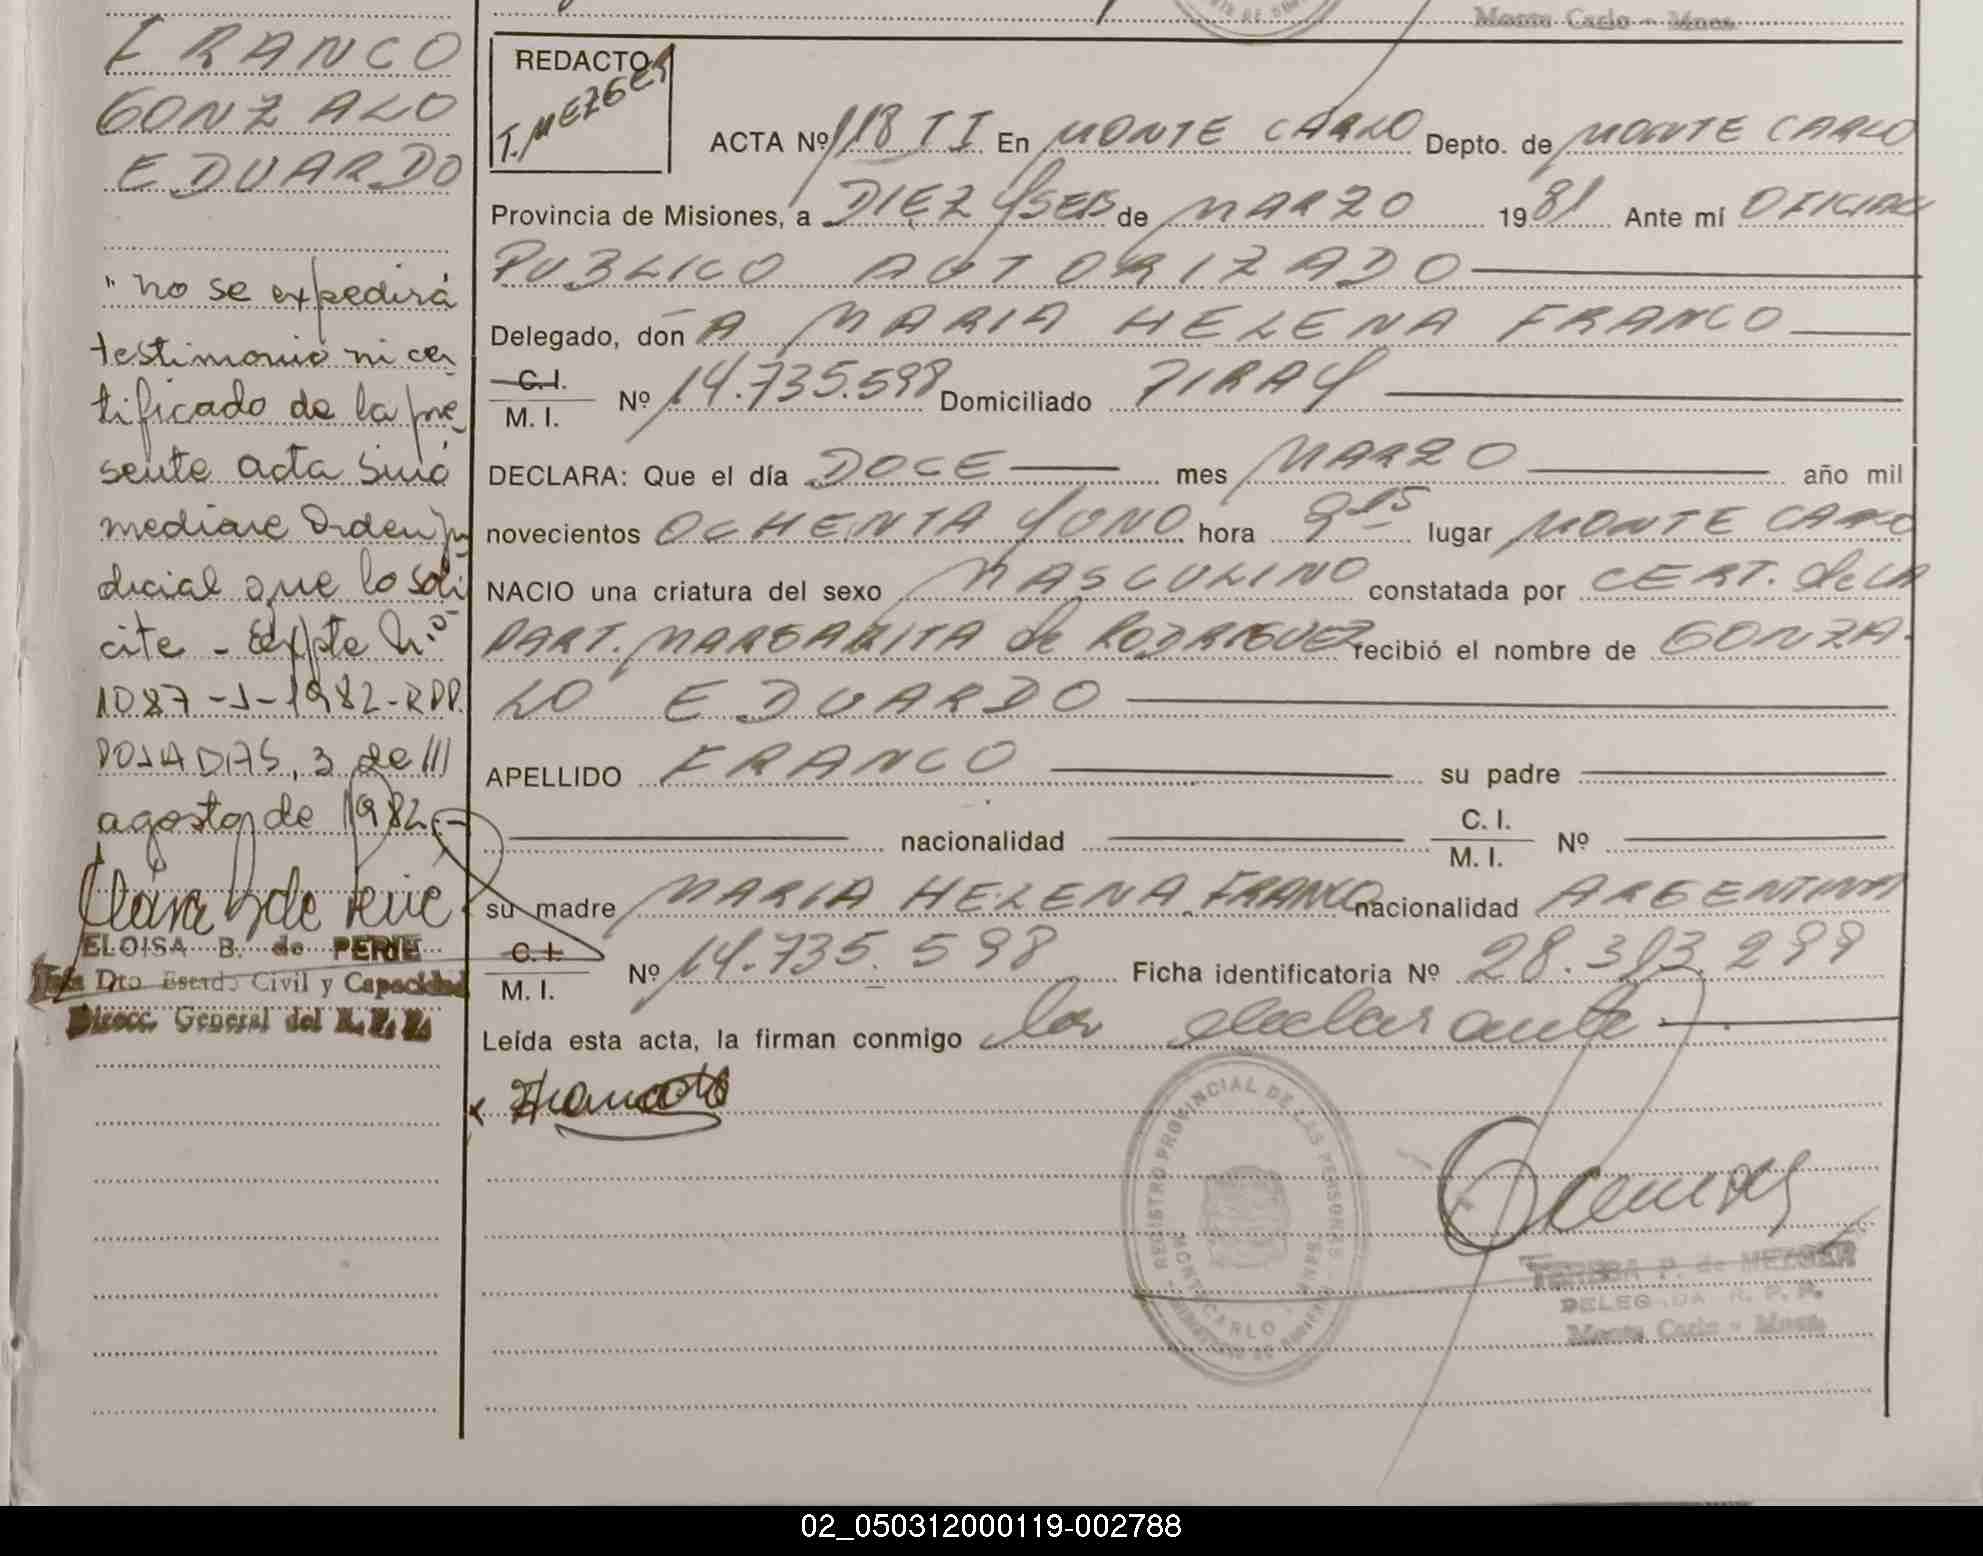 FRANCO
GONZALO
EDUARDO
"no se expedirá
testimonio ni cer
tificado de la pre
sente acta sinó
mediare Orden ju
dicial que lo soli
cite - Expte N.º
1087-J-1982-RPP.
POSADAS, 3 de
agosto de 1982.-
ELOISA B. de PERIE
Dto Estado Civil y Capacidad
Direcc. General del R. P. P.
Monte Carlo - Mnes.
REDACTOR
T. MEZGER
ACTA Nº 118 TI En MONTE CARLO Depto. de MONTE CARLO
Provincia de Misiones, a DIEZ Y SEIS de MARZO 1981 Ante mí OFICIAL
PUBLICO AUTORIZADO
Delegado, don A MARIA HELENA FRANCO
C.I.
M. I. Nº 14.735.598 Domiciliado PIRAY
DECLARA: Que el día DOCE mes MARZO año mil
novecientos OCHENTA Y UNO hora 9 15 lugar MONTE CARLO
NACIO una criatura del sexo MASCULINO constatada por CERT. de LA
PART. MARGARITA de RODRIGUEZ recibió el nombre de GONZA-
LO EDUARDO
APELLIDO FRANCO su padre
nacionalidad C. I.
M. I. Nº
su madre MARIA HELENA FRANCO nacionalidad ARGENTINA
C. I.
M. I. Nº 14.735.598 Ficha identificatoria Nº 28.313.299
Leída esta acta, la firman conmigo la declarante
REGISTRO PROVINCIAL DE LAS PERSONAS
MONTECARLO - MNES
TERESA P. de MEZGER
DELEGADA R. P. P.
Monte Carlo - Mnes.
02_050312000119-002788